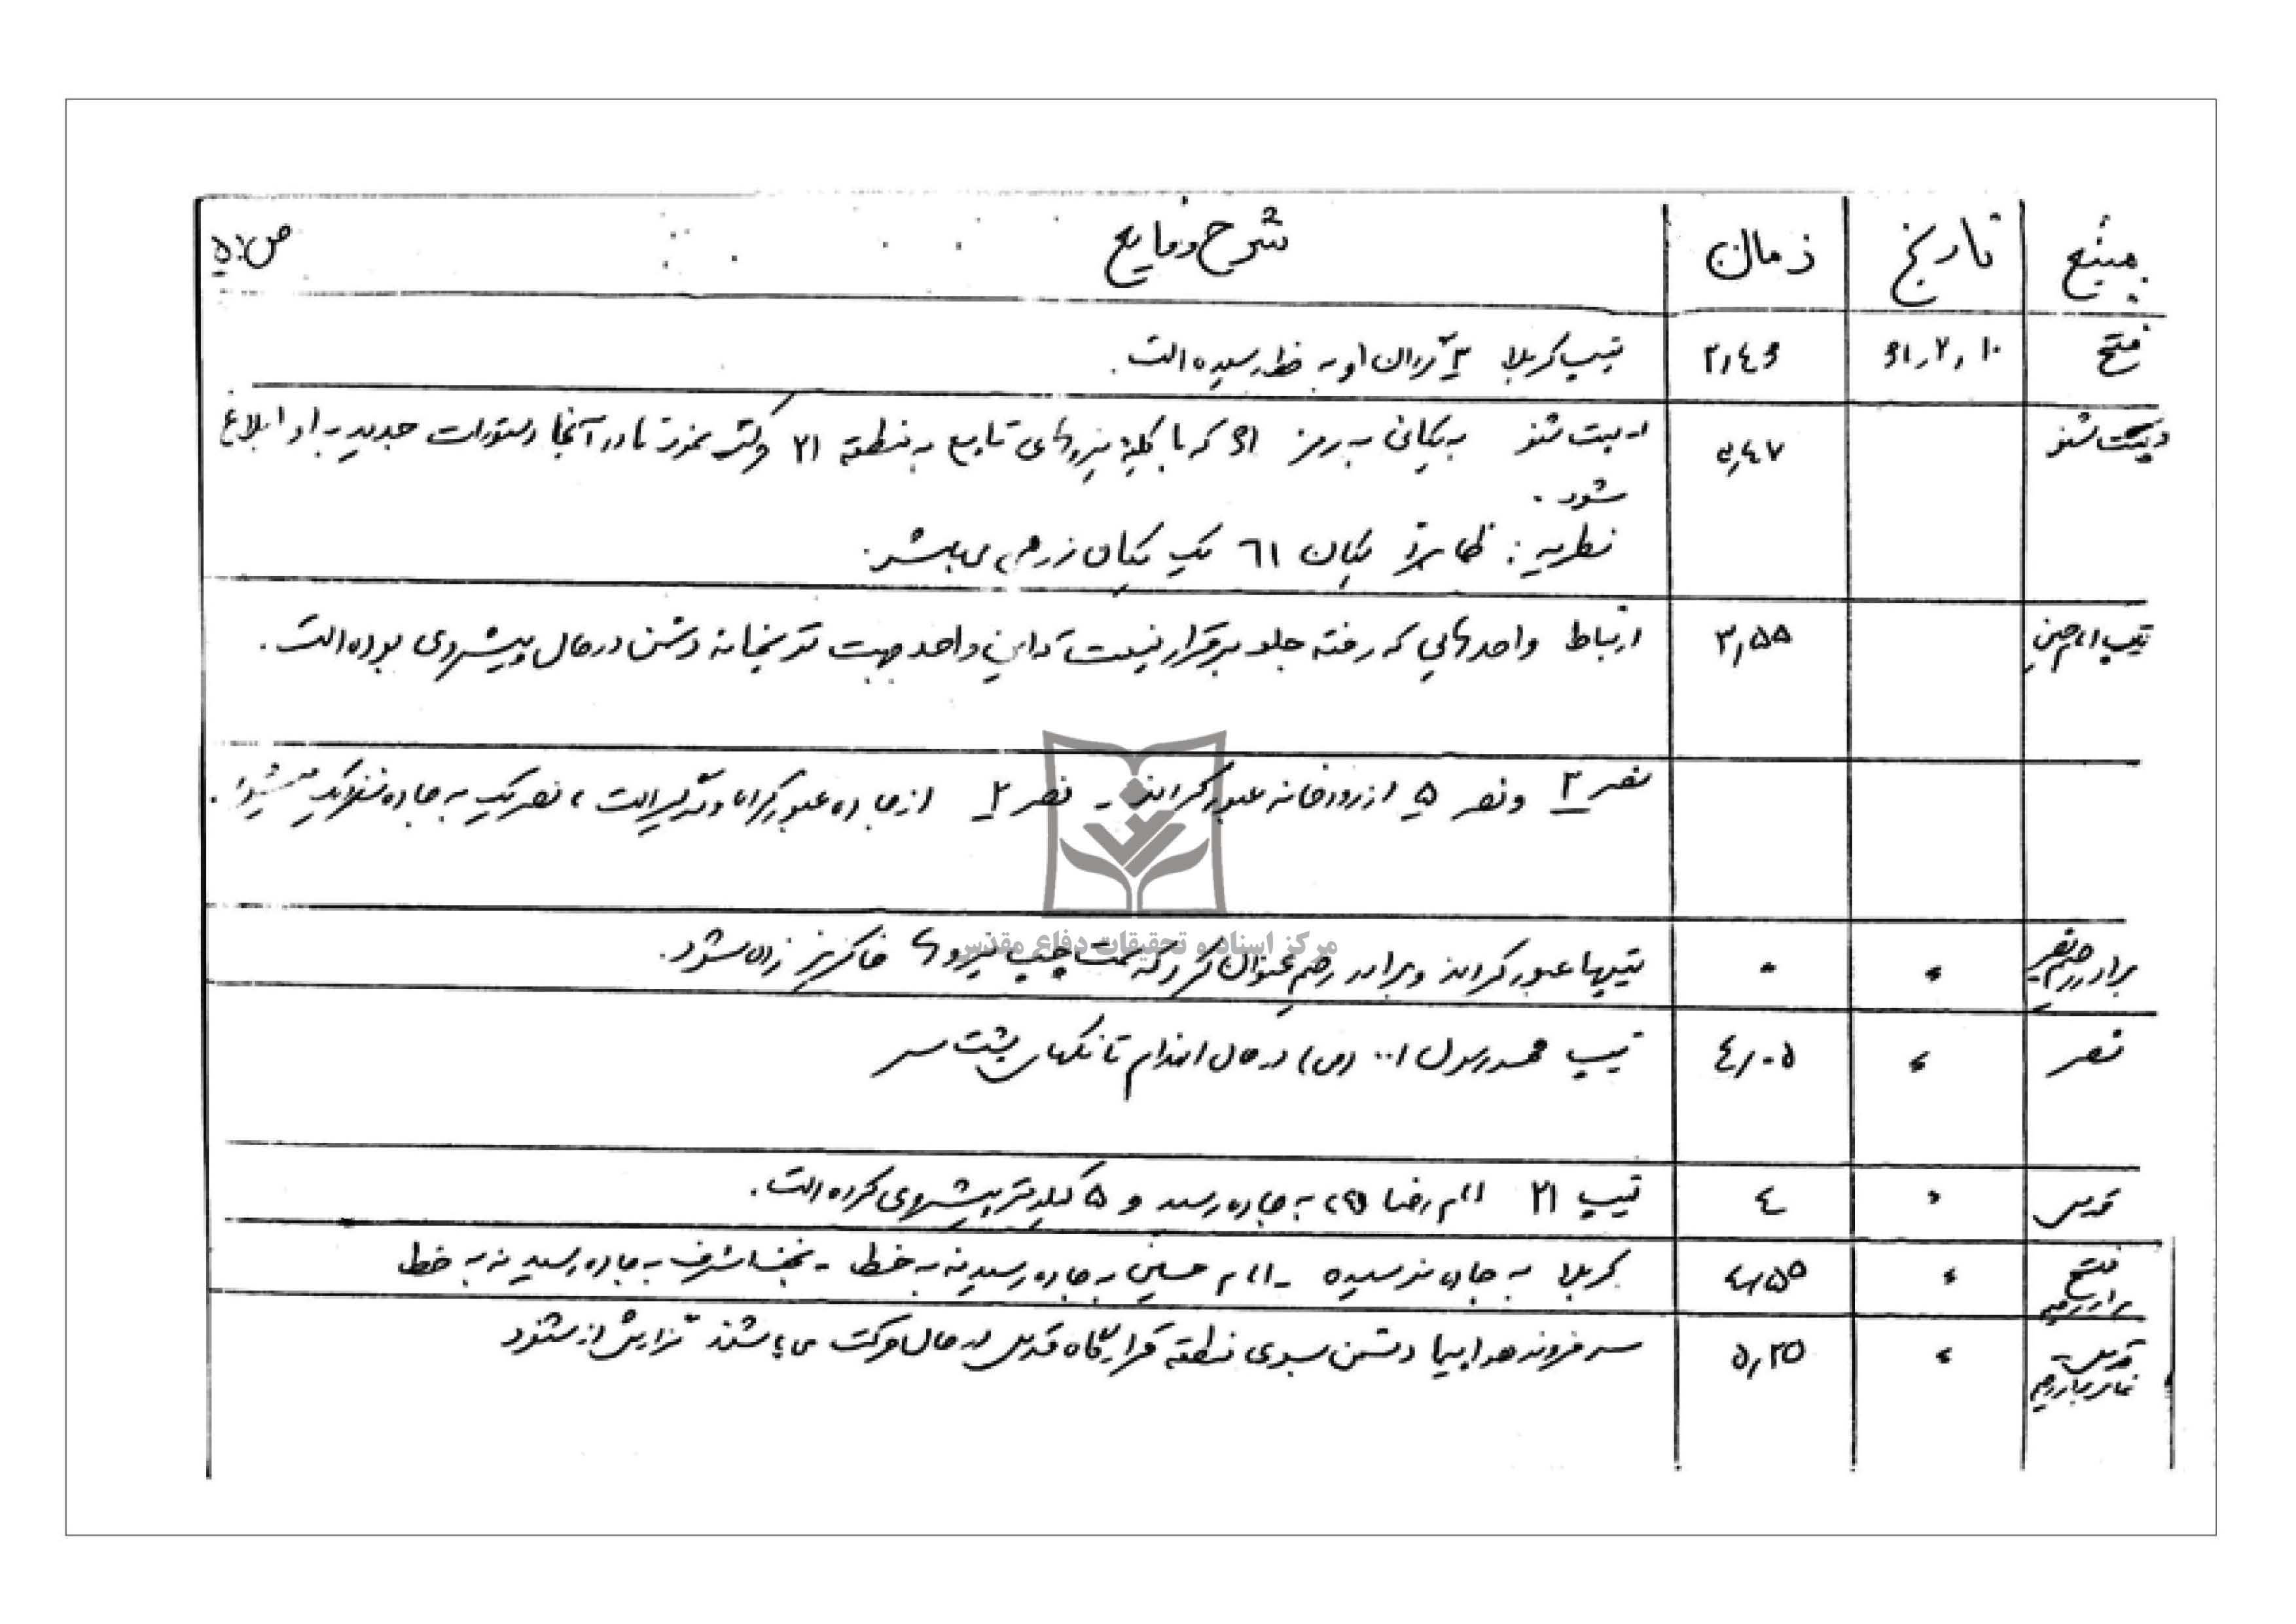 منبع تاریخ زمان شرح وقایع ص:۵
فتح ۶۱٫۲٫۱۰ ۳٫۴۶ تیپ کربلا ۳ گردان او به خط رسیده است.
شنود ۳٫۴۷ به یکانی به رمز ۶۱ که با کلیه نیروهای تابع به منطقه ۲۱ حرکت نموده تا در آنجا دستورات جدید به او ابلاغ
شود.
نظریه: ظاهراً یکان ۶۱ یک یکان زرهی می باشد.
تیپ امام حسین ۳٫۵۵ ارتباط واحدهایی که رفته جلو برقرار نیست این واحد جهت توپخانه دشمن در حال پیشروی بوده است.
نصر ۳ و نصر ۵ از رودخانه عبور کرده‌اند - نصر ۲ از جاده عبور کرده و درگیر است، نصر یک به جاده نزدیک میشود.
برادر رحیم نصر " " تیپها عبور کرده‌اند و برادر رحیم عنوان کرد که سمت چپ نیروها خاکریز زده شود.
نصر " ۴٫۰۵ تیپ محمد رسول ا... (ص) در حال انهدام تانکهای پشت سر
قدس " ۴ تیپ ۲۱ امام رضا (ع) به جاده رسید و ۵ کیلومتر پیشروی کرده است.
فتح " ۴٫۵۵ کربلا به جاده نرسیده - امام حسین به جاده رسید نه به خط - نجف اشرف به جاده رسید نه به خط
برادر رحیم
قدس " ۵٫۲۵ سه فروند هواپیما دشمن بسوی منطقه قرارگاه قدس در حال حرکت می باشند گزارش از شنود